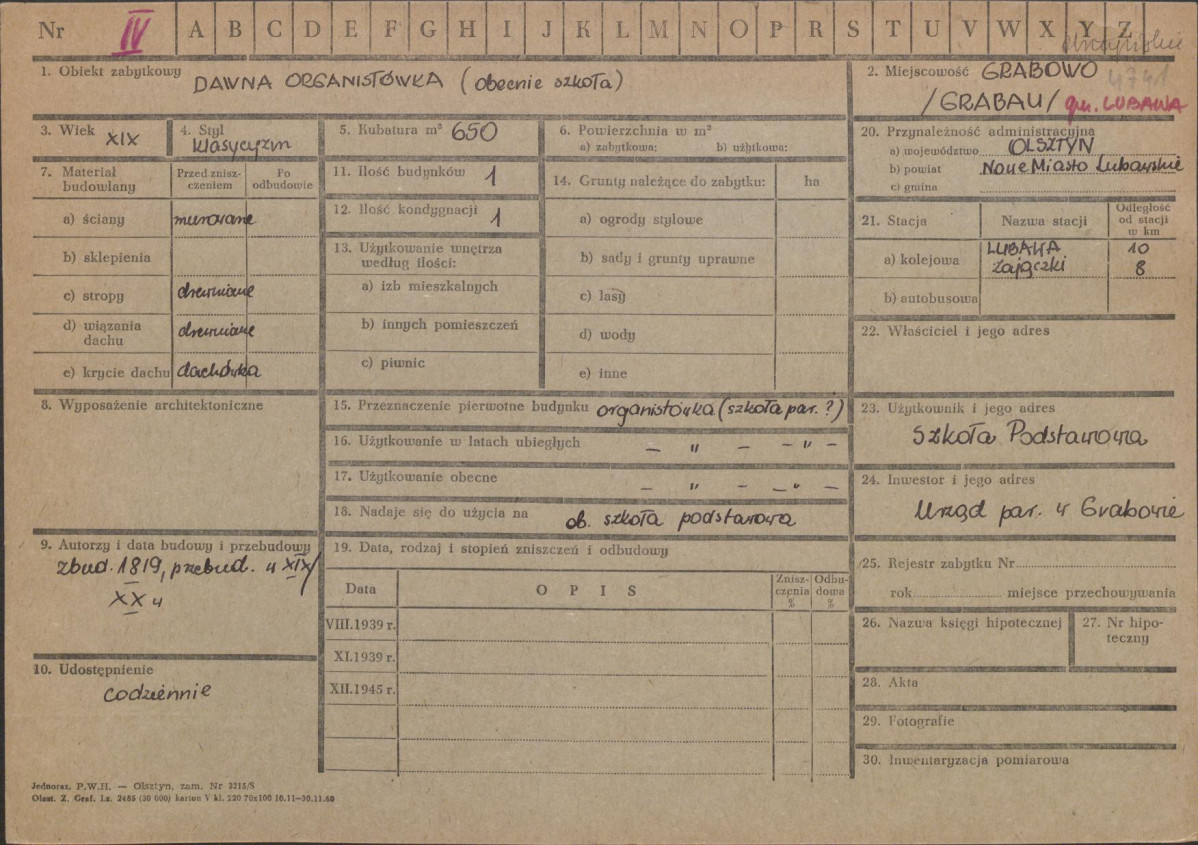 Nr IV A B C D E F G H I J K L M N O P R S T U V W X Y Z
4741
1. Obiekt zabytkowy DAWNA ORGANISTÓWKA (obecnie szkoła)
2. Miejscowość GRABOWO
/GRABAU/ gm. LUBAWA
3. Wiek XIX
4. Styl klasycyzm
5. Kubatura m³ 650
6. Powierzchnia w m²
a) zabytkowa: b) użytkowa:
7. Materiał budowlany
Przed zniszczeniem
Po odbudowie
a) ściany murowane
b) sklepienia
c) stropy drewniane
d) wiązania dachu drewniane
e) krycie dachu dachówka
11. Ilość budynków 1
12. Ilość kondygnacji 1
13. Użytkowanie wnętrza
według ilości:
a) izb mieszkalnych
b) innych pomieszczeń
c) piwnic
14. Grunty należące do zabytku: ha
a) ogrody stylowe
b) sady i grunty uprawne
c) lasy
d) wody
e) inne
20. Przynależność administracyjna
a) województwo OLSZTYN
b) powiat Nowe Miasto Lubawskie
c) gmina
21. Stacja Nazwa stacji Odległość od stacji w km
a) kolejowa LUBAWA 10
Zajączki 8
b) autobusowa
22. Właściciel i jego adres
8. Wyposażenie architektoniczne
15. Przeznaczenie pierwotne budynku organistówka (szkoła par. ?)
16. Użytkowanie w latach ubiegłych – " – – " –
17. Użytkowanie obecne – " – – " –
18. Nadaje się do użycia na ob. szkoła podstawowa
23. Użytkownik i jego adres
Szkoła Podstawowa
24. Inwestor i jego adres
Urząd par. w Grabowie
9. Autorzy i data budowy i przebudowy
zbud. 1819, przebud. w XIX/
XX w
10. Udostępnienie
codziennie
19. Data, rodzaj i stopień zniszczeń i odbudowy
Data OPIS Zniszczenia % Odbudowa %
VIII.1939 r.
XI.1939 r.
XII.1945 r.
25. Rejestr zabytku Nr
rok miejsce przechowywania
26. Nazwa księgi hipotecznej
27. Nr hipoteczny
28. Akta
29. Fotografie
30. Inwentaryzacja pomiarowa
Jednoraz. P.W.H. — Olsztyn, zam. Nr 3215/S
Olszt. Z. Graf. Lz. 2485 (30 000) karton V kl. 220 70x100 10.11—30.11.60